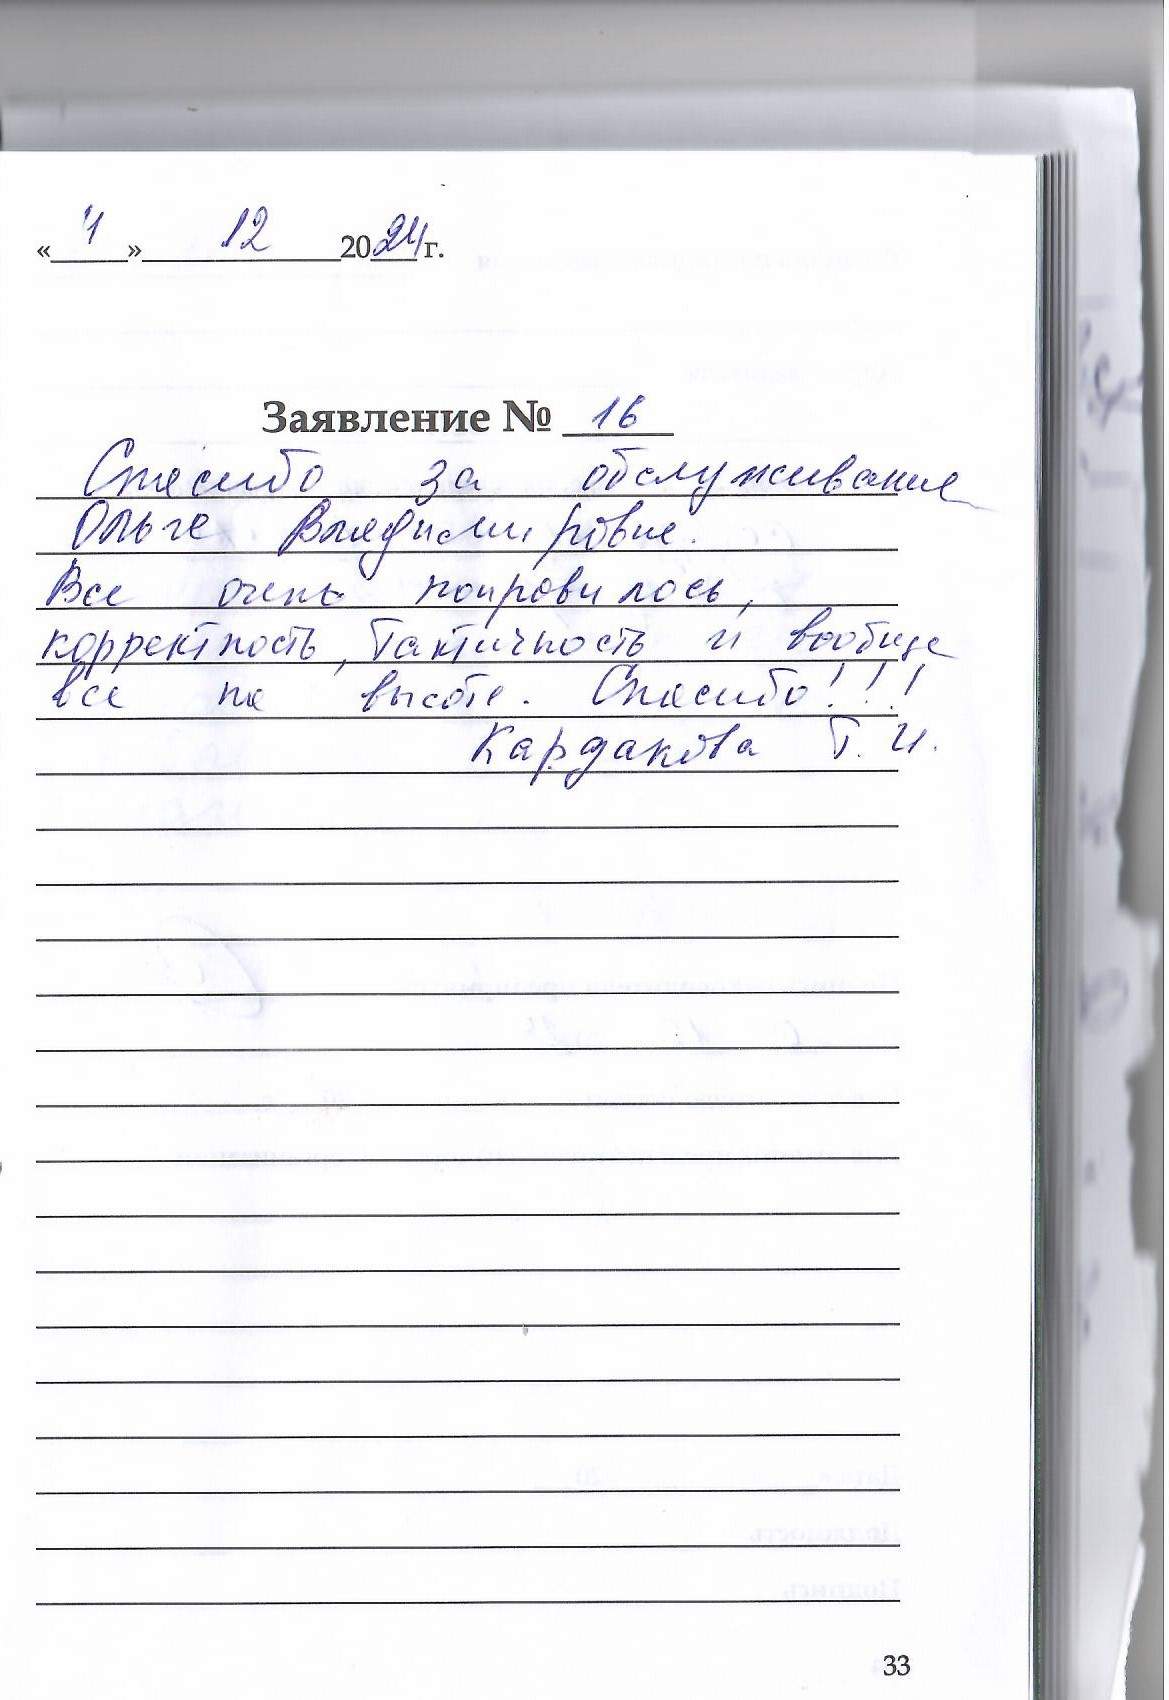 «4» 12 2024 г.
Заявление № 16
Спасибо за обслуживание
Ольге Владимировне.
Все очень понравилось,
корректность, тактичность и вообще
все на высоте. Спасибо!!!
Кардакова Т. И.
33